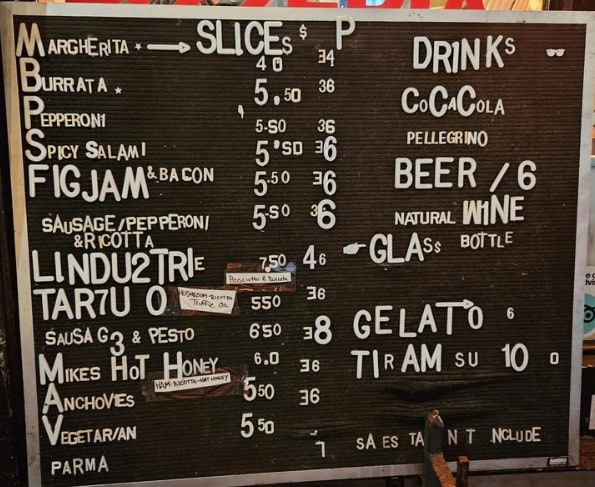 SLICEs $ P
MARGHERITA * 40 34
BURRATA * 5,50 36
PEPPERONI 5-50 36
SPICY SALAMI 5'50 36
FIGJAM & BACON 5-50 36
SAUSAGE/PEPPERONI 5-50 36
& RICOTTA
LINDU2TRIE 7,50 46
Prosciutto & Burrata
TAR7U O 550 36
MUSHROOM-RICOTTA
Truffle OIL
SAUSAG3 & PESTO 650 38
MIKES HOT HONEY 6,0 36
HAM-RICOTTA-HOT HONEY
ANCHOVIES 550 36
VEGETAR/AN 550
PARMA
DRINKs
COCACOLA
PELLEGRINO
BEER / 6
NATURAL WINE
GLAss BOTTLE
GELATO 6
TIRAM SU 10 0
SA ES TA N T NCLUDE